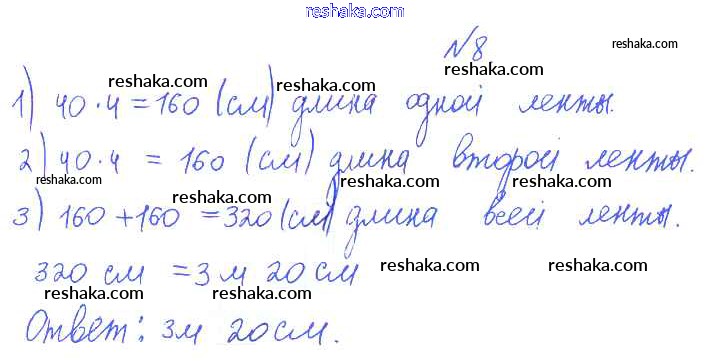 reshaka.com
№8 reshaka.com
reshaka.com reshaka.com reshaka.com
1) 40·4=160 (см) длина одной ленты.
reshaka.com reshaka.com
2) 40·4 = 160 (см) длина второй ленты.
reshaka.com reshaka.com reshaka.com reshaka.com
3) 160+160 =320(см) длина всей ленты.
320 см =3м 20см reshaka.com reshaka.com
reshaka.com reshaka.com
Ответ: 3м 20см.